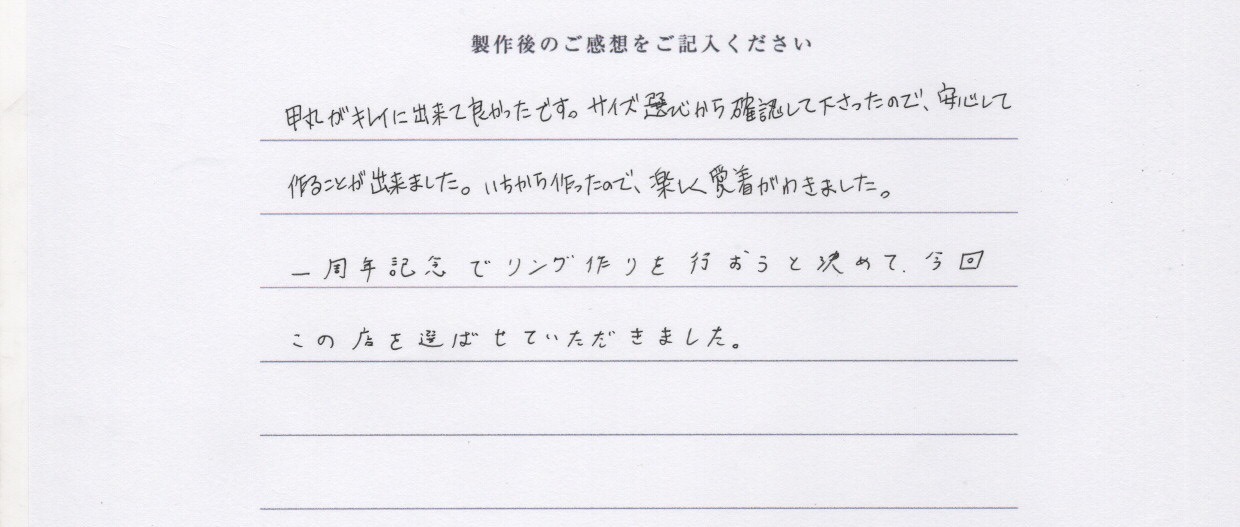 製作後のご感想をご記入ください
甲丸がキレイに出来て良かったです。サイズ選びから確認して下さったので、安心して
作ることが出来ました。いちから作ったので、楽しく愛着がわきました。
一周年記念でリング作りを行おうと決めて、今回
この店を選ばせていただきました。